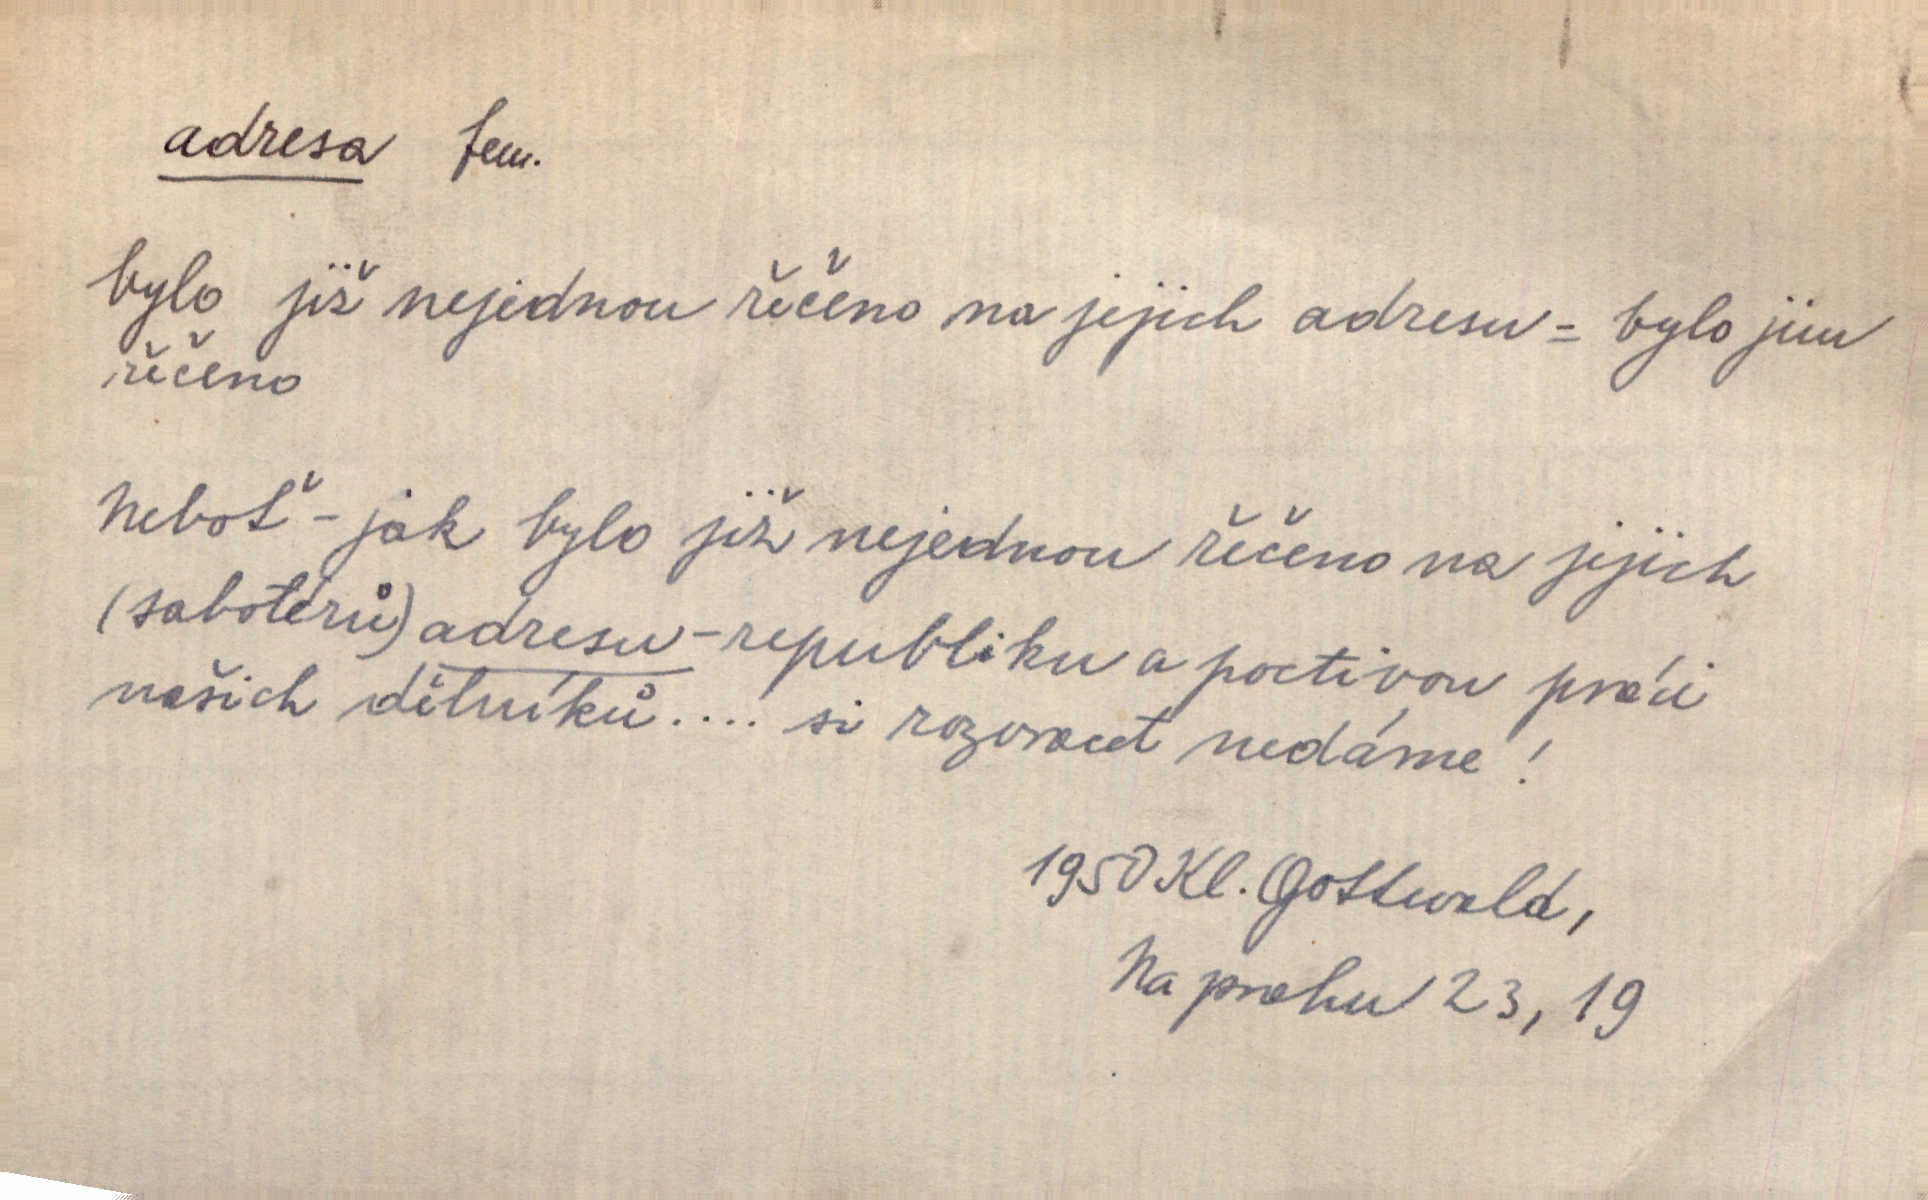 adresa fem.
bylo již nejednou řečeno na jejich adresu = bylo jim
řečeno
Neboť - jak bylo již nejednou řečeno na jejich
(sabotérů) adresu - republiku a poctivou práci
našich dělníků .... si rozvracet nedáme!
1950 Kl. Gottwald,
Na prahu 23, 19